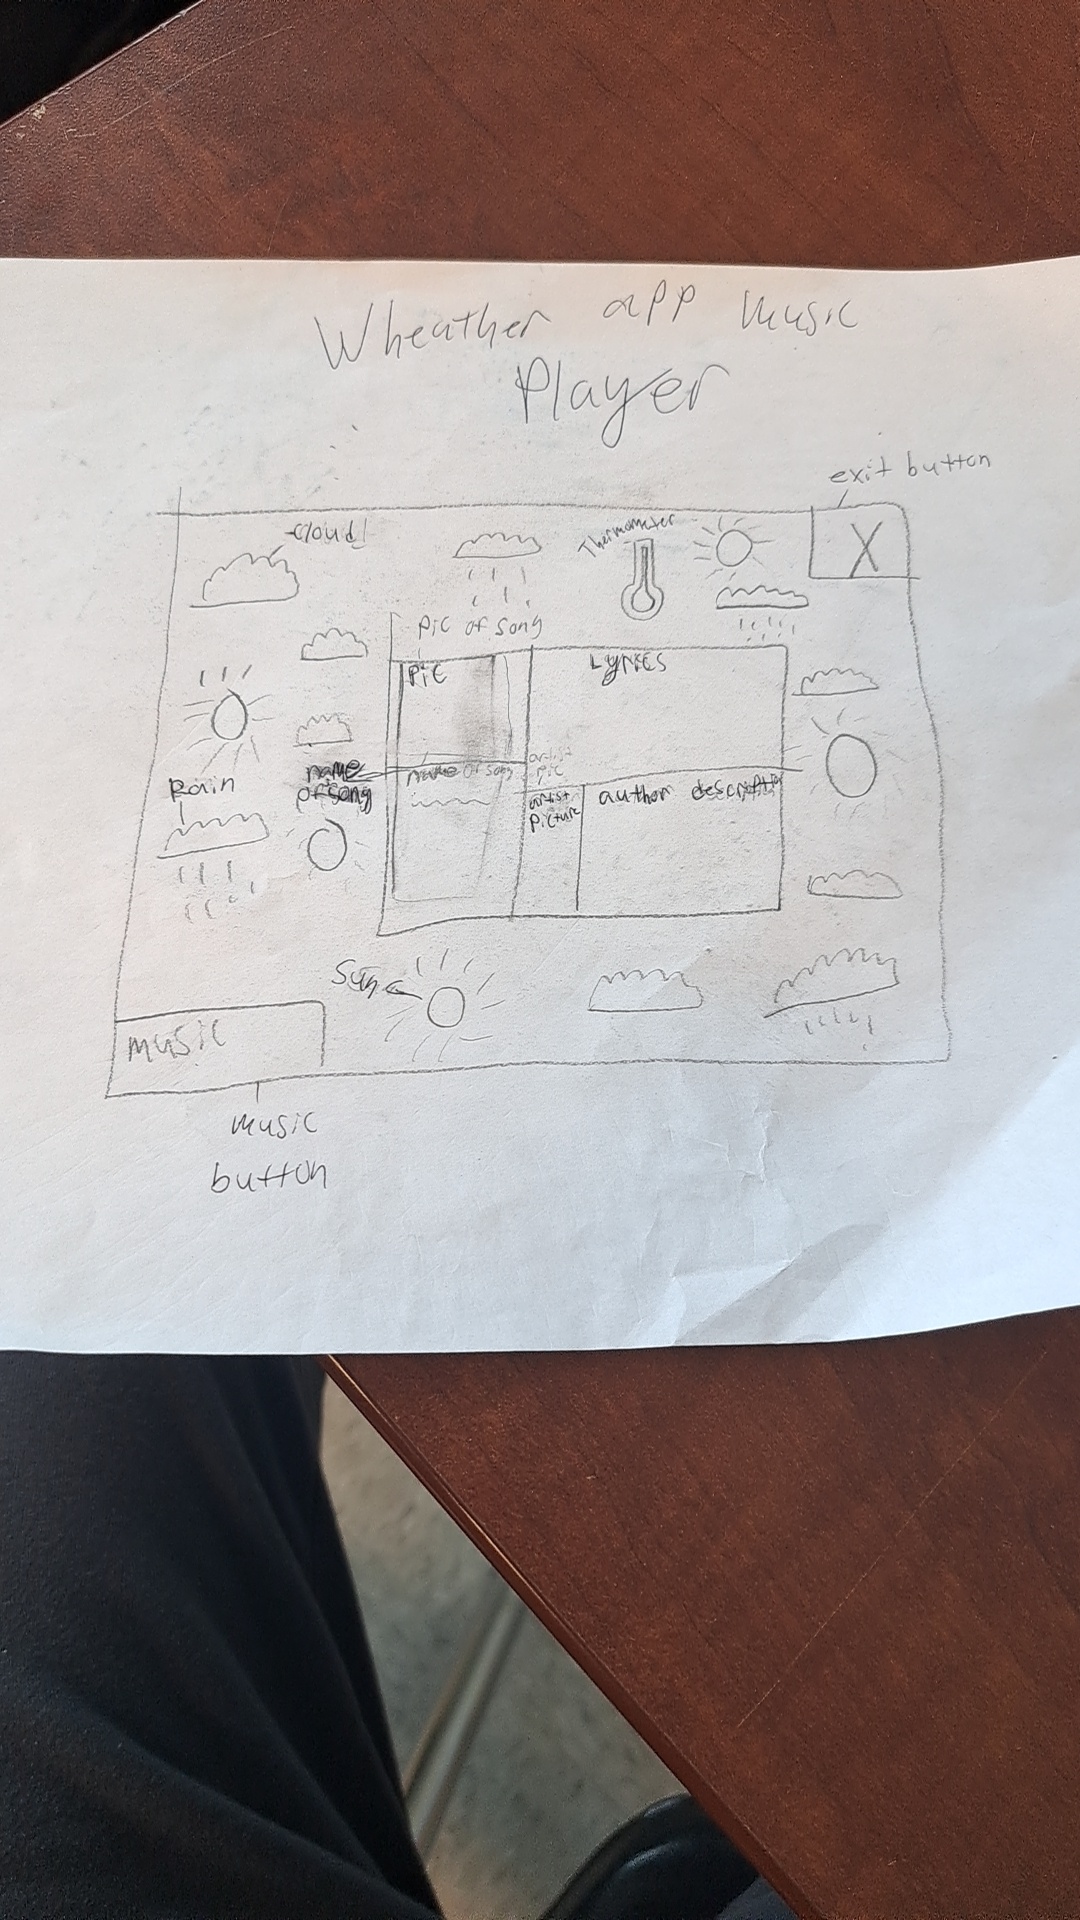 Wheather app music
Player
exit button
cloud!
Thermometer
X
pic of song
Pic
Lyrics
name
of song
name of song
artist
pic
Rain
artist
picture
author description
Sun
music
music
button